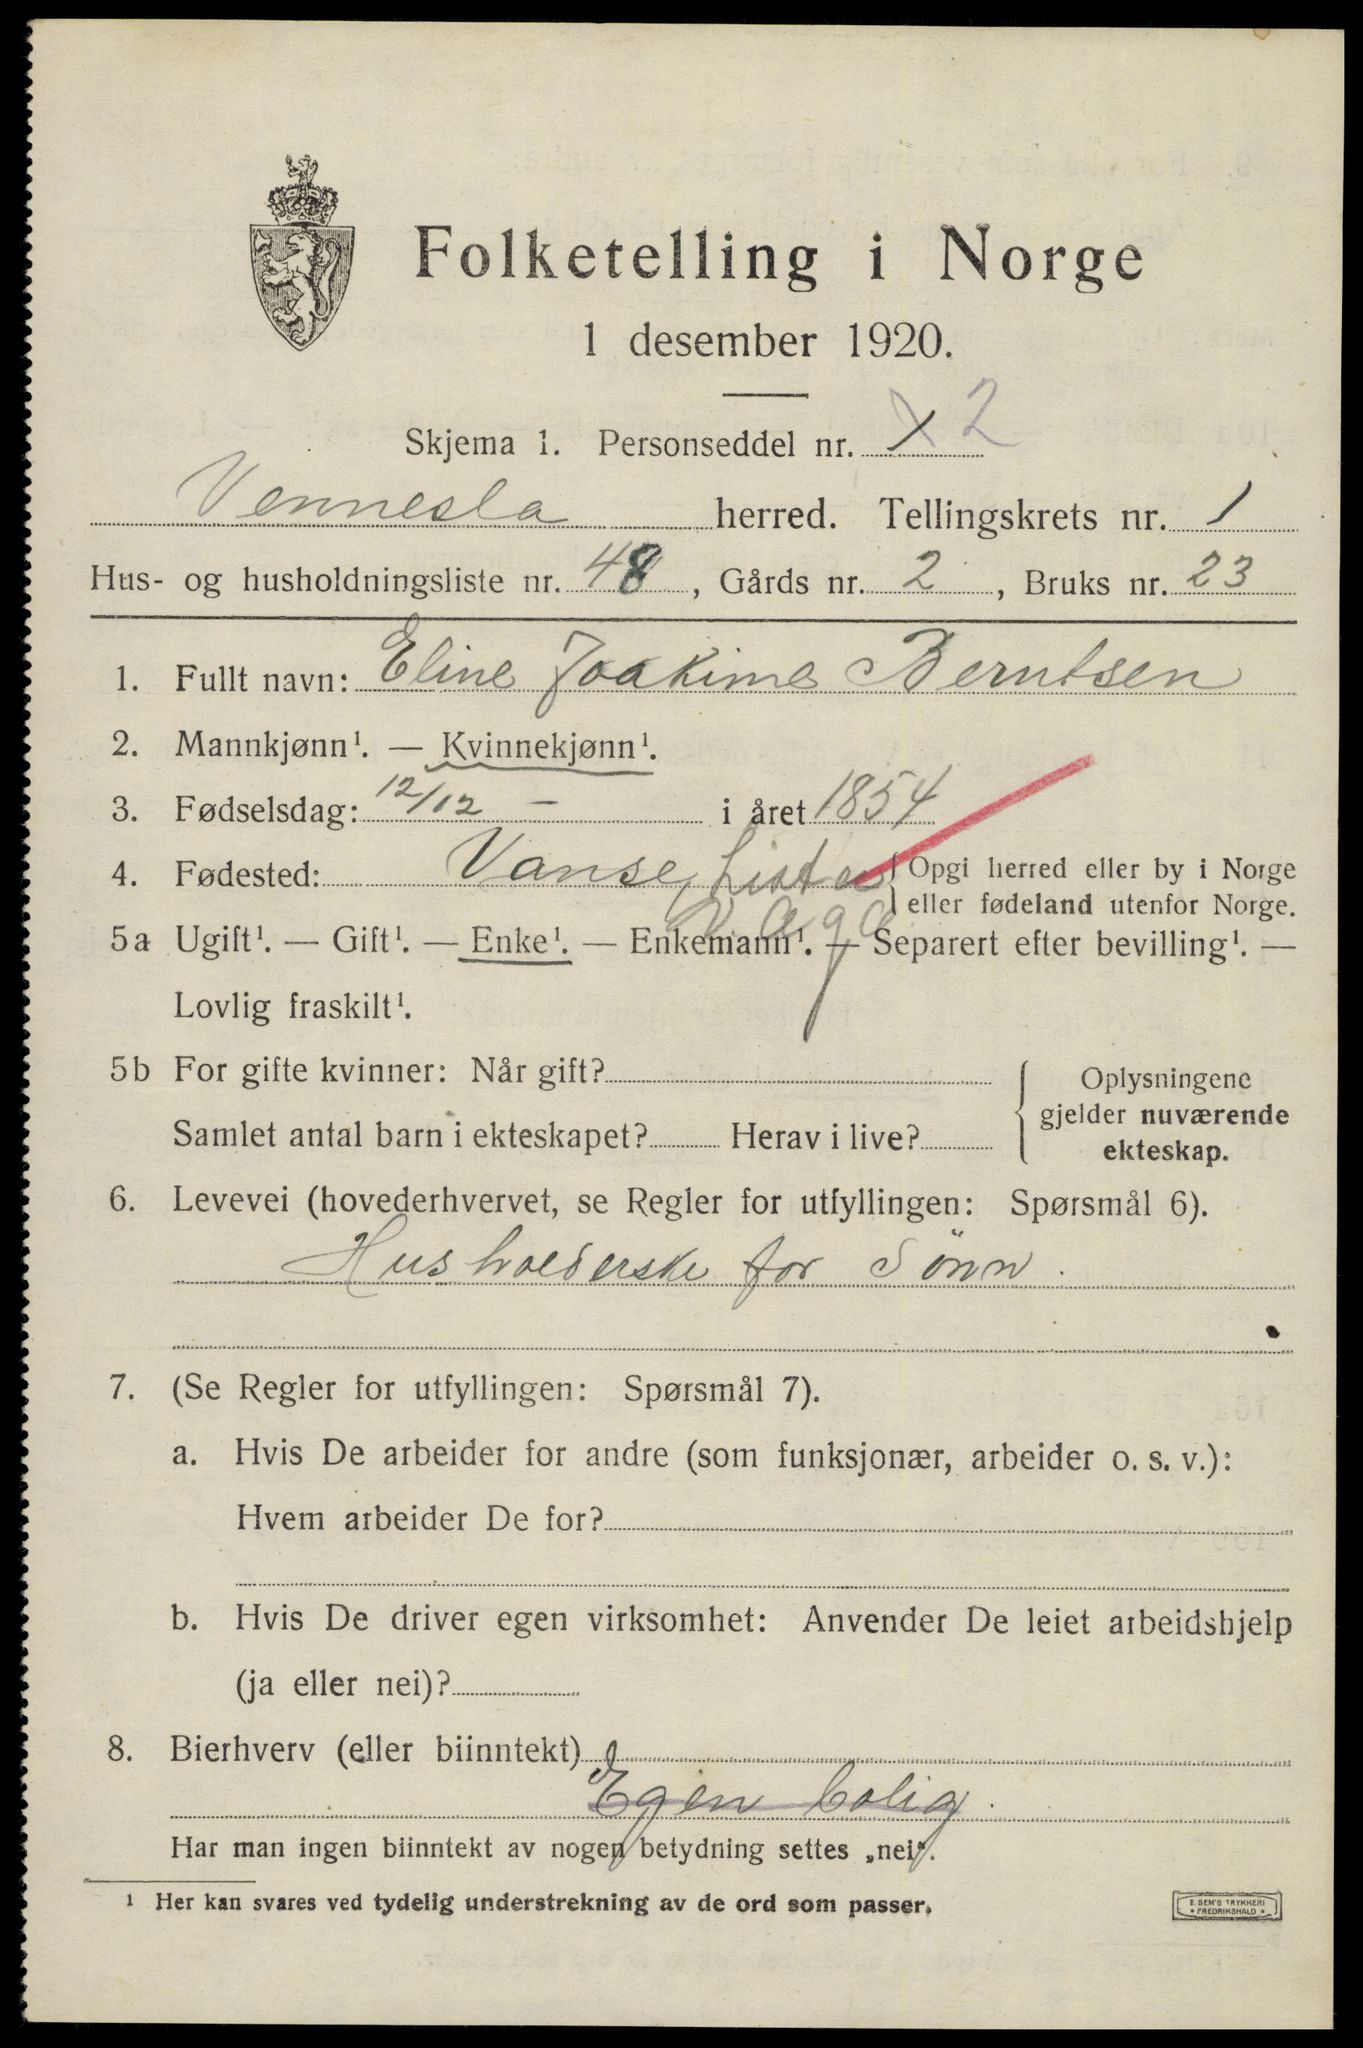 Folketelling i Norge
1 desember 1920.
Skjema 1. Personseddel nr. 1 2
Vennesla herred. Tellingskrets nr. 1
Hus- og husholdningsliste nr. 48, Gårds nr. 2, Bruks nr. 23
1. Fullt navn: Eline Joakime Berntsen
2. Mannkjønn¹. — Kvinnekjønn¹.
3. Fødselsdag: 12/12 – i året 1854
4. Fødested: Vanse, Lista { Opgi herred eller by i Norge
eller fødeland utenfor Norge.
5a Ugift¹. — Gift¹. — Enke¹. — Enkemann¹. — Separert efter bevilling¹. —
Lovlig fraskilt¹.
5b For gifte kvinner: Når gift?
Samlet antal barn i ekteskapet? Herav i live?
{ Oplysningene
gjelder nuværende
ekteskap.
6. Levevei (hovederhvervet, se Regler for utfyllingen: Spørsmål 6).
Husholderske for Sønn.
7. (Se Regler for utfyllingen: Spørsmål 7).
a. Hvis De arbeider for andre (som funksjonær, arbeider o. s. v.):
Hvem arbeider De for?
b. Hvis De driver egen virksomhet: Anvender De leiet arbeidshjelp
(ja eller nei)?
8. Bierhverv (eller biinntekt)
Egen bolig.
Har man ingen biinntekt av nogen betydning settes „nei".
¹ Her kan svares ved tydelig understrekning av de ord som passer.
E. SEM'S TRYKKERI
* FREDRIKSHALD *